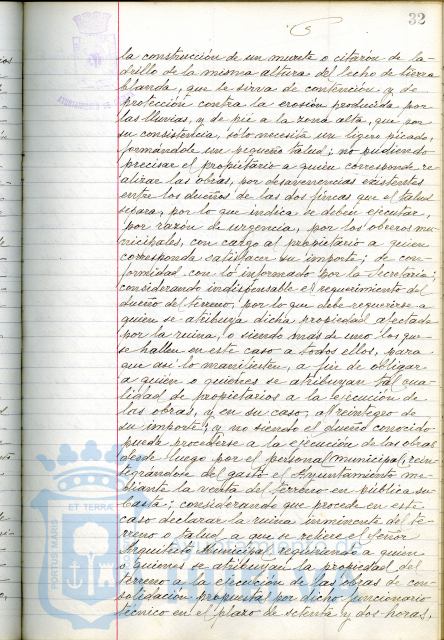 32
la construcción de un murete o citarón de la-
drillo de la misma altura del lecho de tierra
blanda, que le sirva de contención y de
protección contra la erosión producida por
las lluvias, y de pie a la zona alta, que por
su consistencia, sólo necesita un ligero picado,
formándole un pequeño talud; no pudiendo
precisar el propietario a quien corresponde re-
alizar las obras, por desavenencias existentes
entre los dueños de las dos fincas que el talud
separa, por lo que indica se deben ejecutar,
por razón de urgencia, por los obreros mu-
nicipales, con cargo al propietario a quien
corresponda satisfacer su importe; de con-
formidad con lo informado por la Secretaría;
considerando indispensable el requerimiento del
dueño del terreno, por lo que debe requerirse a
quien se atribuya dicha propiedad afectada
por la ruina, o siendo mas de uno los que
se hallen en este caso a todos ellos, para
que así lo manifiesten, a fin de obligar
a quién o quiénes se atribuyan tal cua-
lidad de propietarios a la ejecución de
las obras, y en su caso, al reintegro de
su importe; y no siendo el dueño conocido
pueda procederse a la ejecución de las obras
desde luego por el personal municipal, rein-
tegrándose del gasto el Ayuntamiento me-
diante la venta del terreno en pública su-
basta; considerando que procede en este
caso declarar la ruina inminente del te-
rreno o talud a que se refiere el Señor
Arquitecto Municipal requiriendo a quien
o quienes se atribuyan la propiedad del
terreno a la ejecución de las obras de con-
solidación propuestas por dicho funcionario
técnico en el plazo de setenta y dos horas,
PORTUS MARIS
ET TERRA